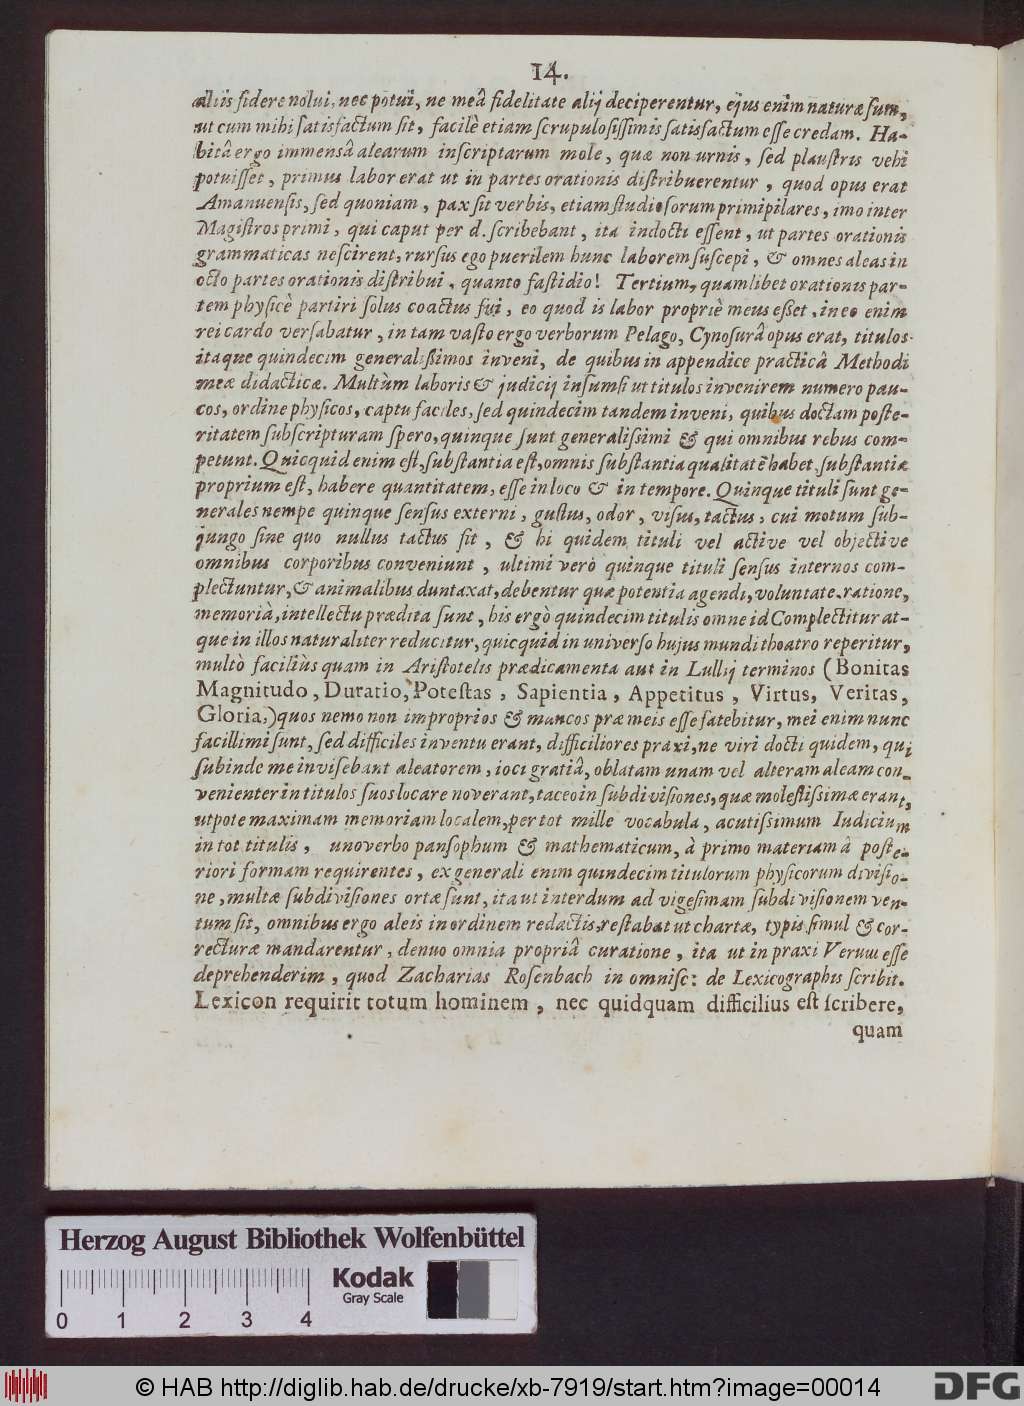 14.
aliis fidere nolui, nec potui, ne meâ fidelitate alij deciperentur, ejus enim naturæ sum,
ut cum mihi satisfactum sit, facilè etiam scrupulosissimis satisfactum esse credam. Ha-
bitâ ergo immensâ alearum inscriptarum mole, quæ non urnis, sed plaustris vehi
potuisset, primus labor erat ut in partes orationis distribuerentur, quod opus erat
Amanuensis, sed quoniam, pax sit verbis, etiam studiosorum primipilares, imo inter
Magistros primi, qui caput per d. scribebant, ita indocti essent, ut partes orationis
grammaticas nescirent, rursus ego puerilem hunc laborem suscepi, & omnes aleas in
octo partes orationis distribui, quanto fastidio! Tertium, quamlibet orationis par-
tem physicè partiri solus coactus fui, eo quod is labor propriè meus esset, in eo enim
rei cardo versabatur, in tam vasto ergo verborum Pelago, Cynosurâ opus erat, titulos
itaque quindecim generalißimos inveni, de quibus in appendice practicâ Methodi
meæ didacticæ. Multùm laboris & judicij insumsi ut titulos invenirem numero pau-
cos, ordine physicos, captu faciles, sed quindecim tandem inveni, quibus doctam poste-
ritatem subscripturam spero, quinque sunt generalissimi & qui omnibus rebus com-
petunt. Quicquid enim est, substantia est, omnis substantia qualitatē habet, substantiæ
proprium est, habere quantitatem, esse in loco & in tempore. Quinque tituli sunt ge-
nerales nempe quinque sensus externi, gustus, odor, visus, tactus, cui motum sub-
jungo sine quo nullus tactus sit, & hi quidem tituli vel active vel objective
omnibus corporibus conveniunt, ultimi verò quinque tituli sensus internos com-
plectuntur, & animalibus duntaxat, debentur quæ potentia agendi, voluntate, ratione,
memoriâ, intellectu prædita sunt, his ergò quindecim titulis omne id Complectitur at-
que in illos naturaliter reducitur, quicquid in universo hujus mundi theatro reperitur,
multò faciliùs quam in Aristotelis prædicamenta aut in Lullij terminos (Bonitas
Magnitudo, Duratio, Potestas, Sapientia, Appetitus, Virtus, Veritas,
Gloria,) quos nemo non improprios & mancos præ meis esse fatebitur, mei enim nunc
facillimi sunt, sed difficiles inventu erant, difficiliores praxi, ne viri docti quidem, qui
subinde me invisebant aleatorem, joci gratiâ, oblatam unam vel alteram aleam con-
venienter in titulos suos locare noverant, taceo in subdivisiones, quæ molestissimæ erant,
utpote maximam memoriam localem, per tot mille vocabula, acutissimum Iudicium
in tot titulis, uno verbo pansophum & mathematicum, à primo materiam â poste-
riori formam requirentes, ex generali enim quindecim titulorum physicorum divisio-
ne, multæ subdivisiones ortæ sunt, ita ut interdum ad vigesimam subdivisionem ven-
tum sit, omnibus ergo aleis in ordinem redactis, restabat ut chartæ, typis simul & cor-
recturæ mandarentur, denuo omnia propriâ curatione, ita ut in praxi Verum esse
deprehenderim, quod Zacharias Rosenbach in omnisc: de Lexicographis scribit.
Lexicon requirit totum hominem, nec quidquam difficilius est scribere,
quam
Herzog August Bibliothek Wolfenbüttel
Kodak
Gray Scale
0 1 2 3 4
© HAB http://diglib.hab.de/drucke/xb-7919/start.htm?image=00014
DFG